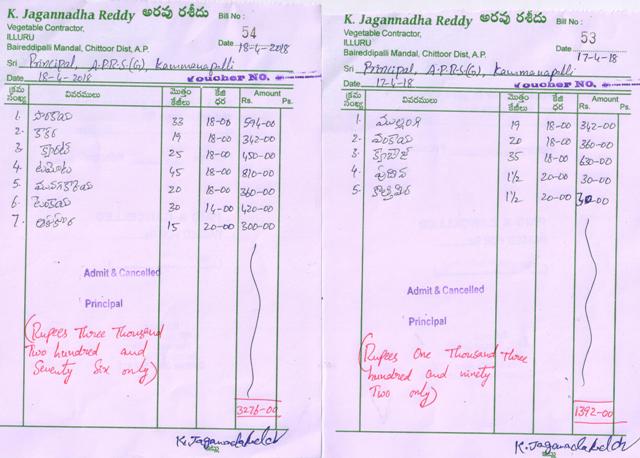 K. Jagannadha Reddy అరువు రశీదు Bill No :
Vegetable Contractor,
ILLURU
54
Baireddipalli Mandal, Chittoor Dist, A.P.
Date 18-4-2018
Sri Principal, A.P.R.S.(G), Kammanapalli
Date 18-4-2018 Voucher NO.
క్రమ సంఖ్య వివరములు మొత్తం కేజీలు కేజి ధర Amount Rs. Ps.
1. 33 18-00 594-00
2. కాకర 19 18-00 342-00
3. క్యారెట్ 25 18-00 450-00
4. టమోట 45 18-00 810-00
5. మునగకాయ 20 18-00 360-00
6. 30 14-00 420-00
7. 15 20-00 300-00
Admit & Cancelled
Principal
(Rupees Three Thousand
Two hundred and
Seventy Six only)
3276-00
K. Jaganadahreddy
K. Jagannadha Reddy అరువు రశీదు Bill No :
Vegetable Contractor,
ILLURU
53
Baireddipalli Mandal, Chittoor Dist, A.P.
Date 17-4-18
Sri Principal, A.P.R.S.(G), Kammanapalli
Date 17-4-18 Voucher NO.
క్రమ సంఖ్య వివరములు మొత్తం కేజీలు కేజి ధర Amount Rs. Ps.
1. ముల్లంగి 19 18-00 342-00
2. వంకాయ 20 18-00 360-00
3. క్యాబేజ్ 35 18-00 630-00
4. పుదిన 1½ 20-00 30-00
5. కొత్తిమిర 1½ 20-00 30-00
Admit & Cancelled
Principal
(Rupees One Thousand three
hundred and ninety
Two only)
1392-00
K. Jaganadahreddy